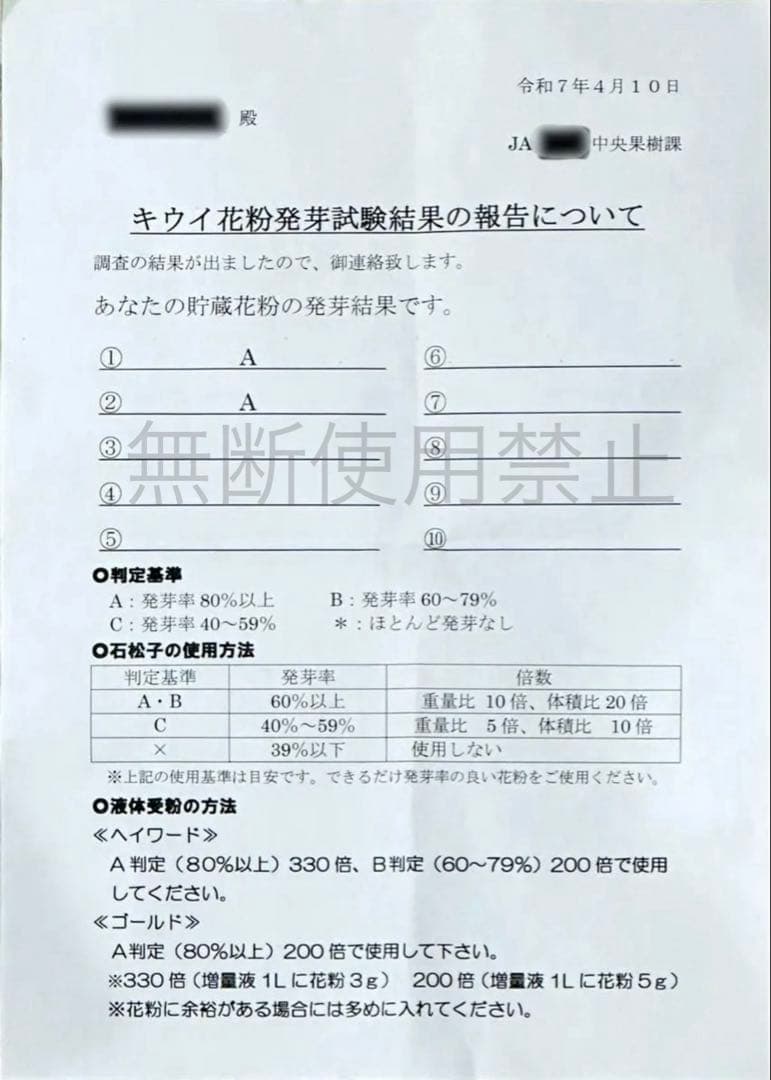 令和７年４月１０日
殿
JA 中央果樹課
キウイ花粉発芽試験結果の報告について
調査の結果が出ましたので、御連絡致します。
あなたの貯蔵花粉の発芽結果です。
① A ⑥
② A ⑦
③ ⑧
④ ⑨
⑤ ⑩
無断使用禁止
○判定基準
A：発芽率80%以上 B：発芽率60～79%
C：発芽率40～59% ＊：ほとんど発芽なし
○石松子の使用方法
判定基準 発芽率 倍数
A・B 60%以上 重量比 10倍、体積比20倍
C 40%～59% 重量比 5倍、体積比 10倍
× 39%以下 使用しない
※上記の使用基準は目安です。できるだけ発芽率の良い花粉をご使用ください。
○液体受粉の方法
≪ヘイワード≫
A判定（80%以上）330倍、B判定（60～79%）200倍で使用
してください。
≪ゴールド≫
A判定（80%以上）200倍で使用して下さい。
※330倍（増量液1Lに花粉3g） 200倍（増量液1Lに花粉5g）
※花粉に余裕がある場合には多めに入れてください。